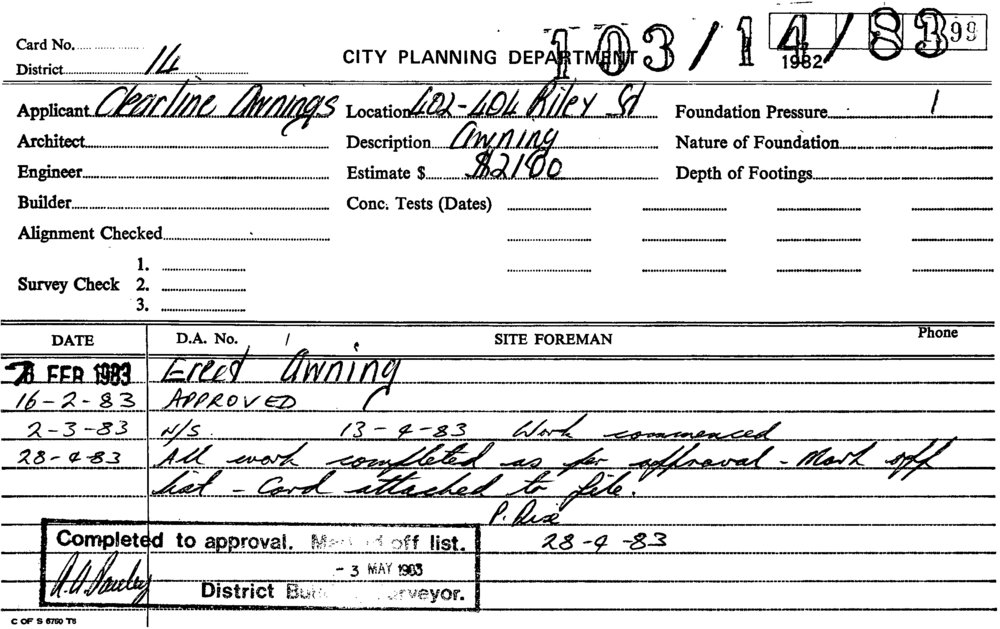 Card No.
CITY PLANNING DEPARTMENT 103/14/83
1982 99
District 14
Applicant Clearline Awnings Location 402-404 Riley St Foundation Pressure
Architect Description Awning Nature of Foundation
Engineer Estimate $ $2100 Depth of Footings
Builder Conc. Tests (Dates)
Alignment Checked
1.
Survey Check 2.
3.
DATE D.A. No. SITE FOREMAN Phone
FEB 1983 Erect Awning
16-2-83 APPROVED
2-3-83 N/S. 13-4-83 Work commenced
28-4-83 All work completed as per approval - Mark off
list - Card attached to file.
28-4-83
Completed to approval. Marked off list.
- 3 MAY 1983
District Building Surveyor.
C OF S 6760 T8